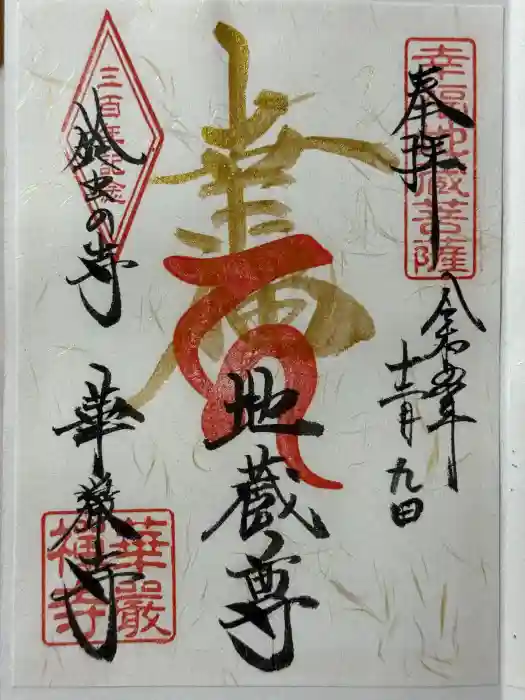 幸福地蔵菩薩
奉拝
令和五年
十二月九日
地蔵尊
三百年記念
鈴虫の寺
華厳寺
華嚴
禅寺